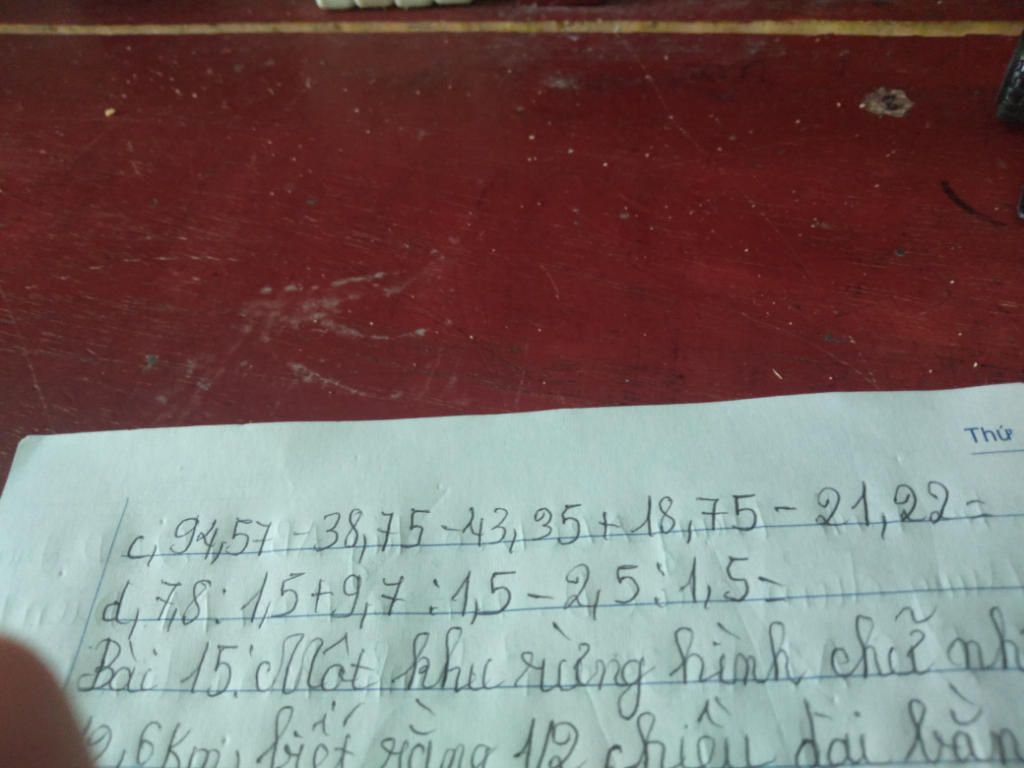 Thứ
c, 94,57 - 38,75 - 43,35 + 18,75 - 21,22 =
d, 7,8 : 1,5 + 9,7 : 1,5 - 2,5 : 1,5 =
Bài 15: Một khu rừng hình chữ
,6km, biết rằng 1/2 chiều dài